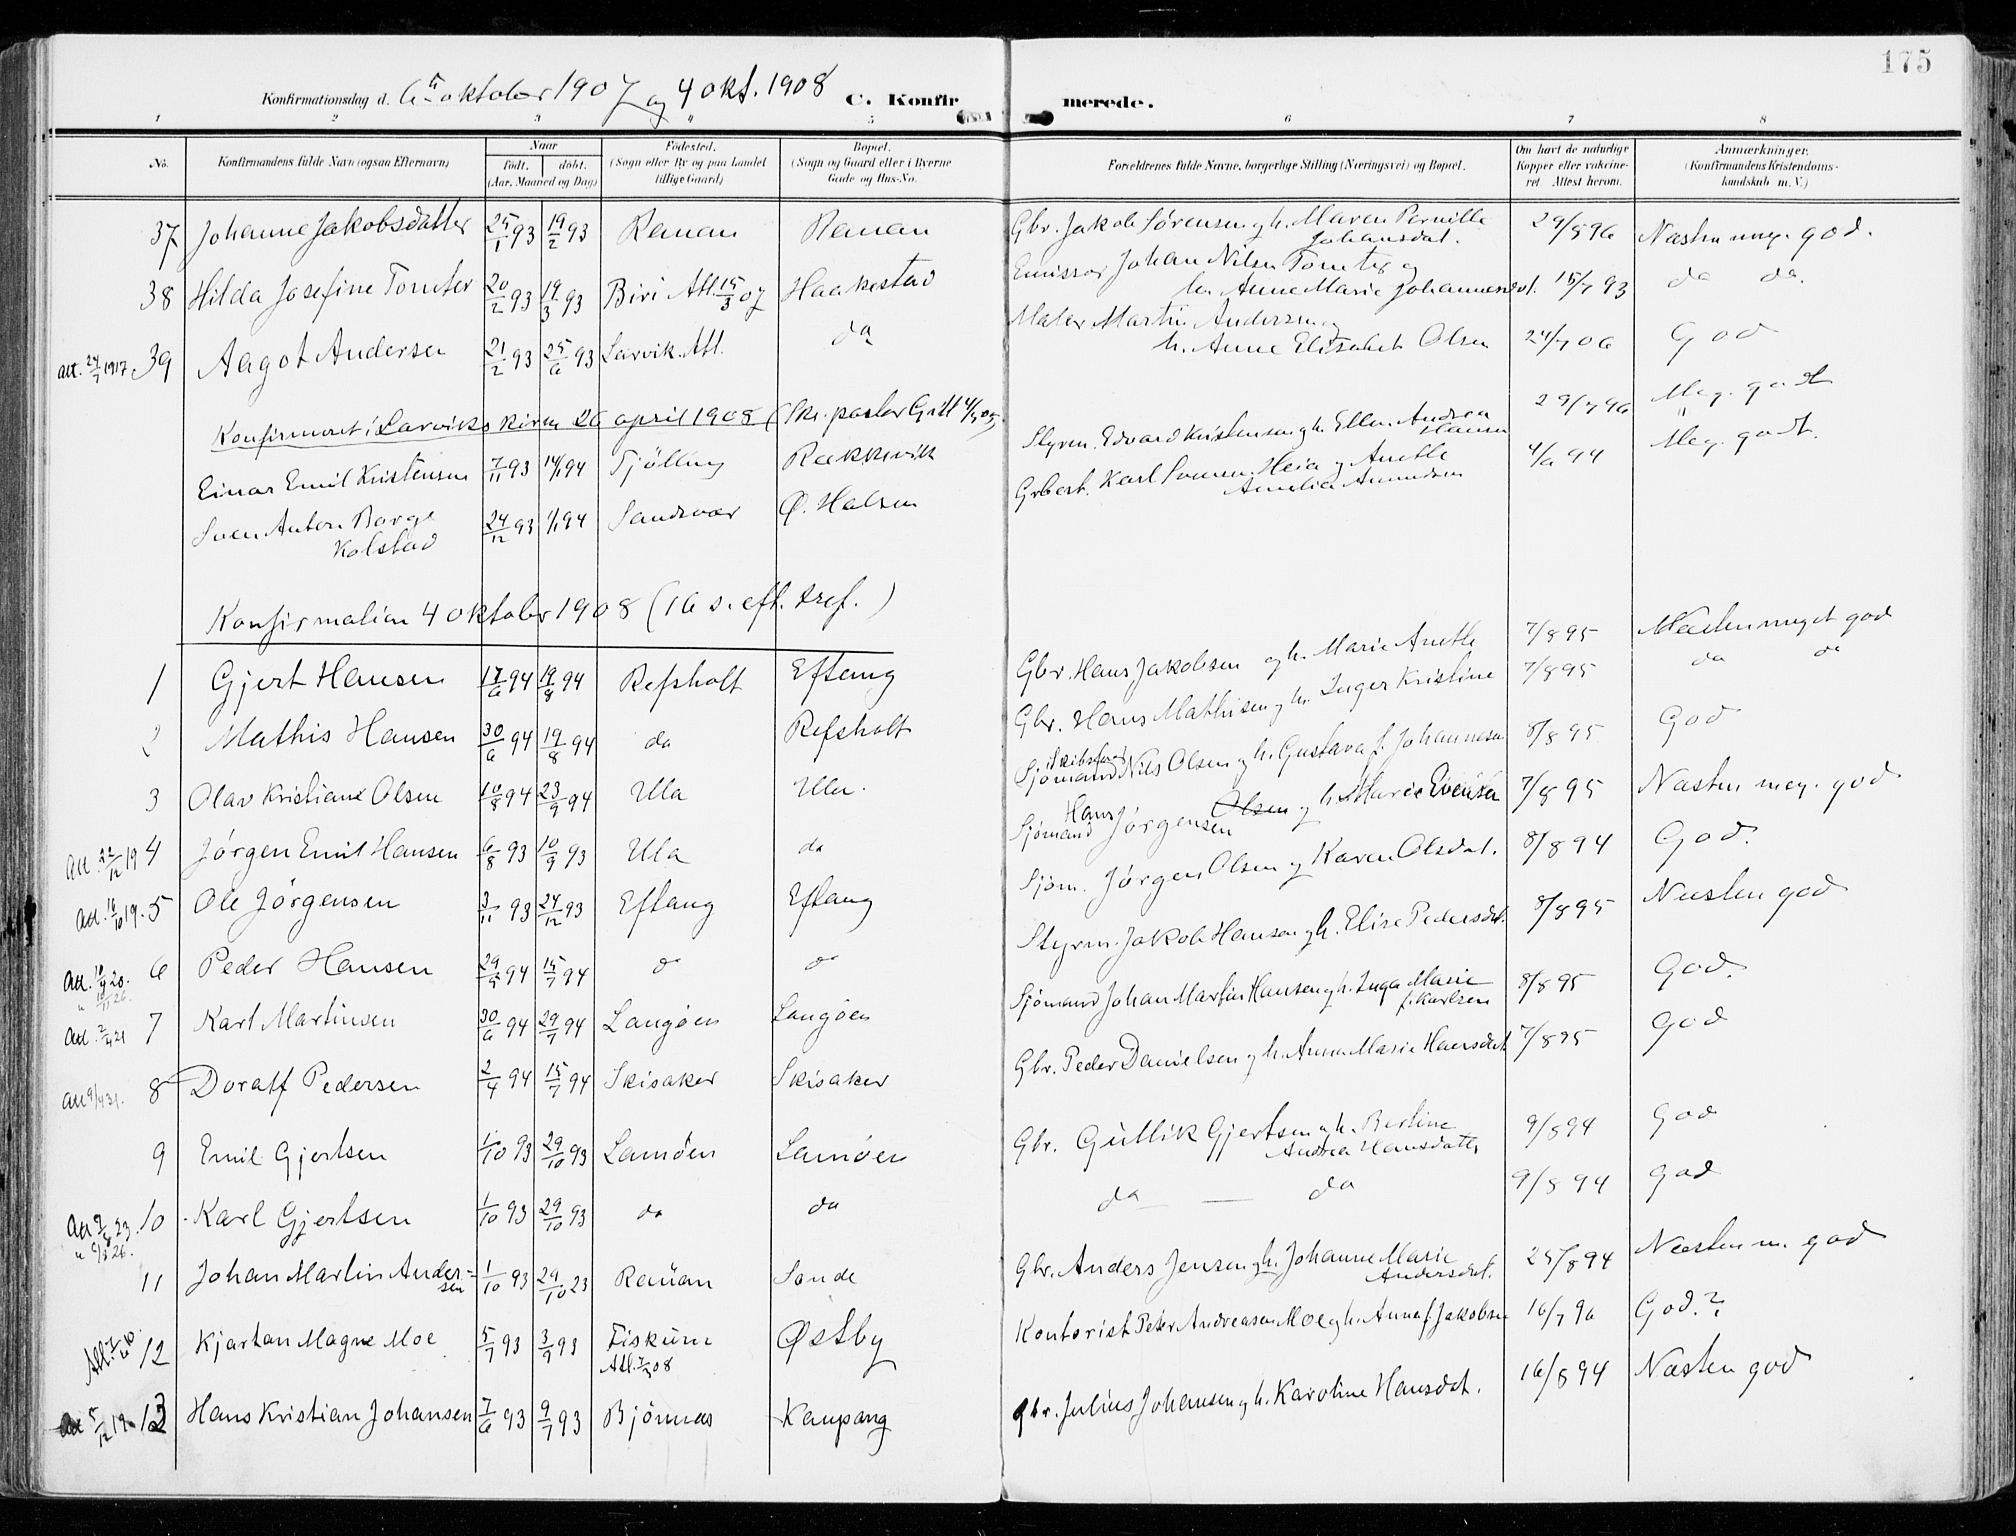 175
Konfirmationsdag d. 6te oktober 1907 og 4 okt. 1908 C. Konfirmerede.
1 2 3 4 5 6 7 8
No. Konfirmandens fulde Navn (ogsaa Efternavn) Naar født. døbt. (Aar, Maaned og Dag) Fødested. (Sogn eller By og paa Landet tillige Gaard) Bopæl. (Sogn og Gaard eller i Byerne Gade og Hus-No. Forældrenes fulde Navne, borgerlige Stilling (Næringsvei) og Bopæl. Om havt de naturlige Kopper eller vakcineret Attest herom. Anmærkninger. (Konfirmandens Kristendomskundskab m. V.)
37 Johanne Jakobsdatter 25/1 93 19/2 93 Rauan Rauan Gbr. Jakob Sørensen og h. Maren Pernille Johansdat. 29/8 96 Næsten meg. god.
38 Hilda Josefine Tomter 20/2 93 19/3 93 Biri Att. 15/3 07 Haakestad Emissær Johan Nilsen Tomter og h. Anne Marie Johannesdt. 15/7 93 do do.
Att. 24/7 1917 39 Aagot Andersen 21/2 93 25/6 93 Larvik. Att. do Maler Martin Andersen og h. Anne Elisabet Olsen 24/7 06 God
Konfirmeret i Larviks kirke 26 april 1908 (Skr. pastor Grill 4/7 05)
Einar Emil Kristensen 7/11 93 14/1 94 Tjølling Rækkevik Styrm. Edvard Kristensen og h. Ellen Andrea Hansen 29/7 96 Meg. godt
Sven Anton Borge Kolstad 24/12 93 1/1 94 Sandsvær Ø. Halsen Grbest. Karl Svensen Heia og Anette Amelia Amundsen 4/9 94 Meg. godt.
Konfirmation 4 oktober 1908 (16 s. eft. tref.)
1 Gjert Hansen 17/6 94 19/8 94 Refsholt Eftang Gbr. Hans Jakobsen og h. Marie Anette 7/8 95 Næsten meget god
2 Mathis Hansen 30/6 94 19/8 94 do Refsholt Gbr. Hans Mathisen og h. Inger Kristine 7/8 95 do do
3 Olav Kristiane Olsen 10/8 94 23/9 94 Ula Ula. Sjømand Nils Olsen og h. Gustava f. Johannesen 8/8 95 God
Att. 22/12 19 4 Jørgen Emil Hansen 6/8 93 10/9 93 Ula do Sjømand Hans Jørgensen Olsen og h. Marie Evensen 7/8 95 Næsten meg. god
Att. 16/10 19. 5 Ole Jørgensen 3/11 93 24/12 93 Eftang Eftang Sjøm. Jørgen Olsen og Karen Olsdat. 8/8 94 God.
6 Peder Hansen 29/5 94 15/7 94 do do Styrm. Jakob Hansen og h. Elise Pedersdt. 8/8 95 Næsten god
Att. 2/4 21 7 Karl Martinsen 30/6 94 29/7 94 Langøen Langøen Sjømand Johan Martin Hansen og h. Inga Marie f. Karlsen 8/8 95 God.
Att 9/4 31. 8 Doralf Pedersen 2/4 94 15/7 94 Skisaker Skisaker Gbr. Peder Danielsen og h. Anna Marie Hansdat 7/8 95 God
9 Emil Gjertsen 1/10 93 29/10 93 Lamøen Lamøen Gbr. Gullik Gjertsen og h. Bertine Andrea Hansdatter 9/8 94 God
10 Karl Gjertsen 1/10 93 29/10 93 do do do — do 9/8 94 God
11 Johan Martin Andersen 1/10 93 29/10 23 Rauan Sande Gbr. Anders Jensen og h. Johanne Marie Andersdat. 25/8 94 Næsten m. god
12 Kjartan Magne Moe 5/7 93 3/9 93 Fiskum Att. 7/3 08 Østby Kontorist Peter Andreasen Moe og h. Anna f. Jakobsen 16/7 96 God.?
Att 5/12 19 13 Hans Kristian Johansen 7/6 93 9/7 93 Bjønnes Kaupang Gbr. Julius Johansen og h. Karoline Hansdat. 16/8 94 Næsten god